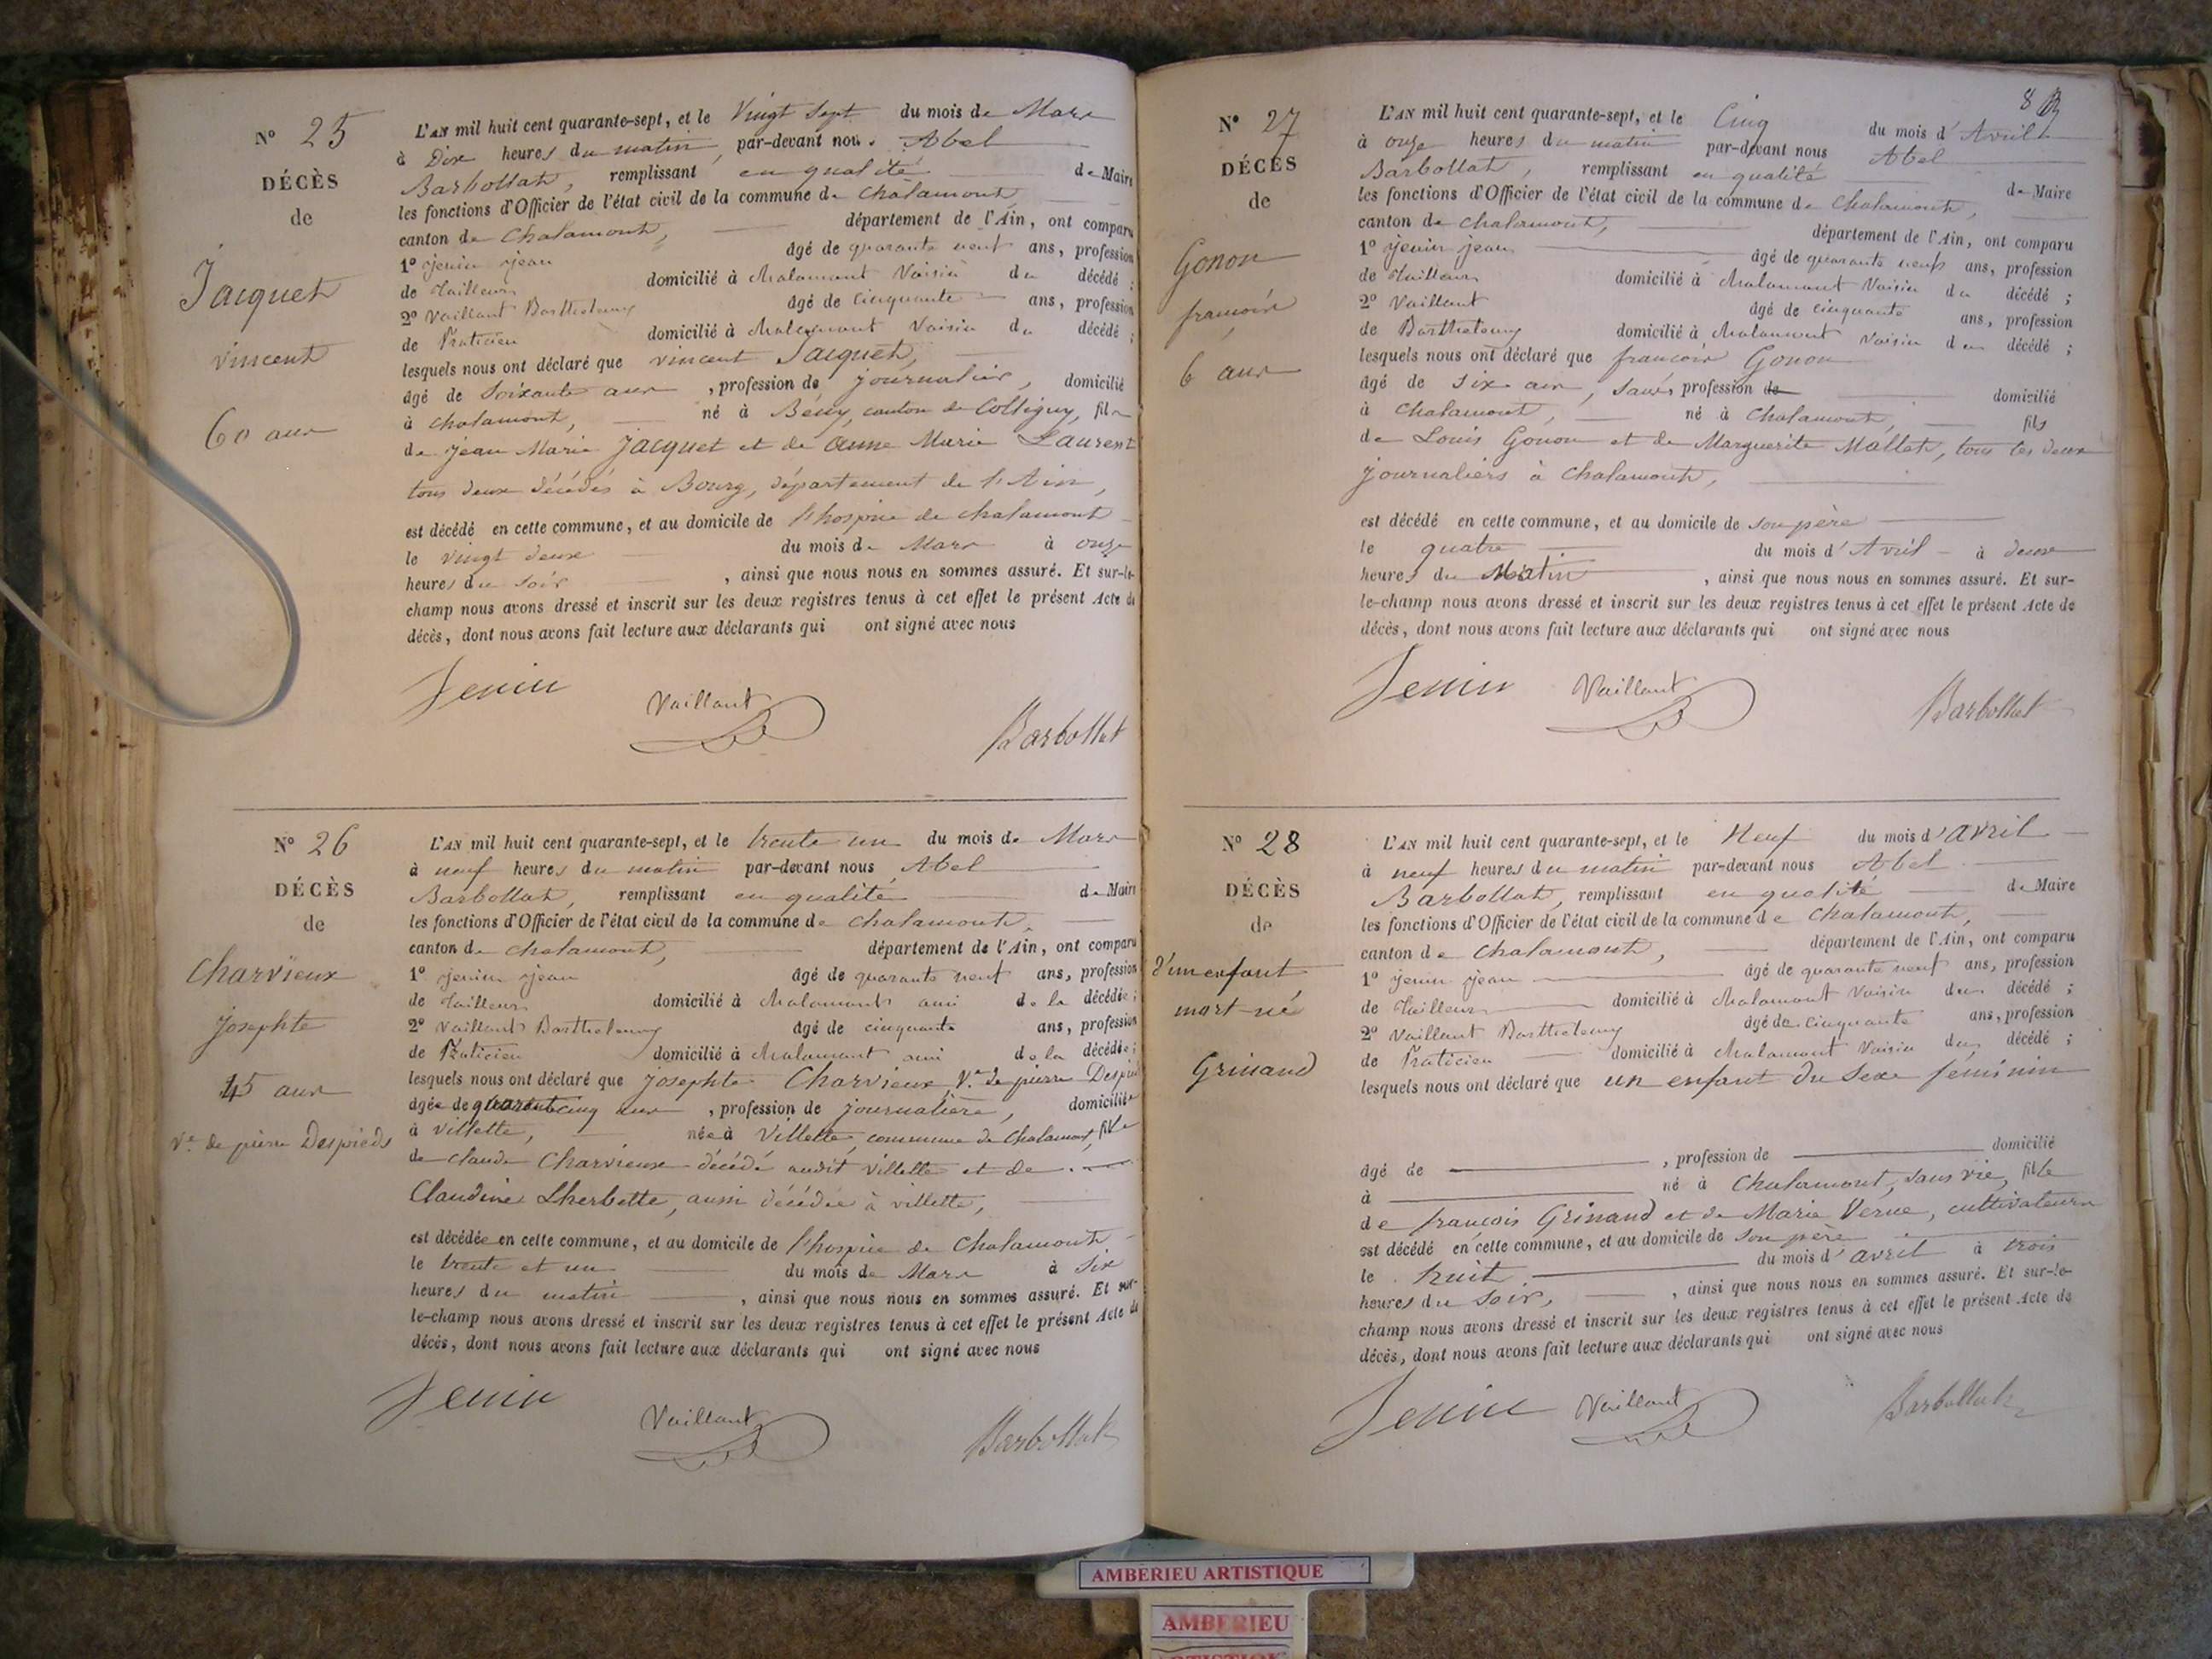 N° 25
DÉCÈS
de
Jacquet
vincent
60 ans
L'AN mil huit cent quarante-sept, et le Vingt Sept du mois de Mars
à Dix heures du matin, par-devant nous Abel
Barbollat, remplissant en qualité de Maire
les fonctions d'Officier de l'état civil de la commune de Chalamont,
canton de Chalamont, département de l'Ain, ont comparu
1° Jenin Jean âgé de quarante neuf ans, profession
de Tailleur domicilié à Chalamont Voisin du décédé ;
2° Vaillant Barthelemy âgé de Cinquante ans, profession
de Praticien domicilié à Chalamont Voisin du décédé ;
lesquels nous ont déclaré que vincent Jacquet,
âgé de Soixante ans, profession de journalier, domicilié
à Chalamont, né à Bény, canton de Colligny, fils
de Jean Marie Jacquet et de Anne Marie Laurent
tous deux décédés à Bourg, département de l'Ain,
est décédé en cette commune, et au domicile de l'hospice de Chalamont
le vingt deux du mois de Mars à onze
heures du soir, ainsi que nous nous en sommes assuré. Et sur-le-
champ nous avons dressé et inscrit sur les deux registres tenus à cet effet le présent Acte de
décès, dont nous avons fait lecture aux déclarants qui ont signé avec nous
Jenin Vaillant Barbollat
N° 26
DÉCÈS
de
Charvieux
Josephte
45 ans
Ve de pierre Despieds
L'AN mil huit cent quarante-sept, et le trente un du mois de Mars
à neuf heures du matin par-devant nous Abel
Barbollat, remplissant en qualité de Maire
les fonctions d'Officier de l'état civil de la commune de Chalamont,
canton de Chalamont, département de l'Ain, ont comparu
1° Jenin Jean âgé de quarante neuf ans, profession
de Tailleur domicilié à Chalamont ami de la décédée ;
2° Vaillant Barthelemy âgé de cinquante ans, profession
de Praticien domicilié à Chalamont ami de la décédée ;
lesquels nous ont déclaré que Josephte Charvieux Ve de pierre Despieds
âgée de quarante cinq ans, profession de journalière, domiciliée
à Villette, née à Villette, commune de Chalamont, fille
de Claude Charvieux décédé audit villette et de
Claudine Lherbette, aussi décédée à villette,
est décédée en cette commune, et au domicile de l'hospice de Chalamont
le trente et un du mois de Mars à Six
heures du matin, ainsi que nous nous en sommes assuré. Et sur-
le-champ nous avons dressé et inscrit sur les deux registres tenus à cet effet le présent Acte de
décès, dont nous avons fait lecture aux déclarants qui ont signé avec nous
Jenin Vaillant Barbollat
8
N° 27
DÉCÈS
de
Gonon
françois
6 ans
L'AN mil huit cent quarante-sept, et le Cinq du mois d'Avril
à onze heures du matin par-devant nous Abel
Barbollat, remplissant en qualité de Maire
les fonctions d'Officier de l'état civil de la commune de Chalamont,
canton de Chalamont, département de l'Ain, ont comparu
1° Jenin Jean âgé de quarante neuf ans, profession
de Tailleur domicilié à Chalamont Voisin du décédé ;
2° Vaillant âgé de cinquante ans, profession
de Barthelemy domicilié à Chalamont Voisin du décédé ;
lesquels nous ont déclaré que françois Gonon
âgé de six ans, sans profession de domicilié
à Chalamont, né à Chalamont, fils
de Louis Gonon et de Marguerite Mallet, tous les deux
journaliers à Chalamont,
est décédé en cette commune, et au domicile de son père
le quatre du mois d'Avril à deux
heures du Matin, ainsi que nous nous en sommes assuré. Et sur-
le-champ nous avons dressé et inscrit sur les deux registres tenus à cet effet le présent Acte de
décès, dont nous avons fait lecture aux déclarants qui ont signé avec nous
Jenin Vaillant Barbollat
N° 28
DÉCÈS
de
d'un enfant
mort-né
Grinand
L'AN mil huit cent quarante-sept, et le Neuf du mois d'avril
à neuf heures du matin par-devant nous Abel
Barbollat, remplissant en qualité de Maire
les fonctions d'Officier de l'état civil de la commune de Chalamont,
canton de Chalamont, département de l'Ain, ont comparu
1° Jenin Jean âgé de quarante neuf ans, profession
de Tailleur domicilié à Chalamont Voisin du décédé ;
2° Vaillant Barthelemy âgé de Cinquante ans, profession
de Praticien domicilié à Chalamont Voisin du décédé ;
lesquels nous ont déclaré que un enfant du sexe féminin
âgé de , profession de domicilié
à né à Chalamont, sans vie, fille
de françois Grinand et de Marie Verne, cultivateurs
est décédé en cette commune, et au domicile de son père
le huit du mois d'avril à trois
heures du soir, ainsi que nous nous en sommes assuré. Et sur-le-
champ nous avons dressé et inscrit sur les deux registres tenus à cet effet le présent Acte de
décès, dont nous avons fait lecture aux déclarants qui ont signé avec nous
Jenin Vaillant Barbollat
AMBERIEU ARTISTIQUE
AMBERIEU
ARTISTIQUE